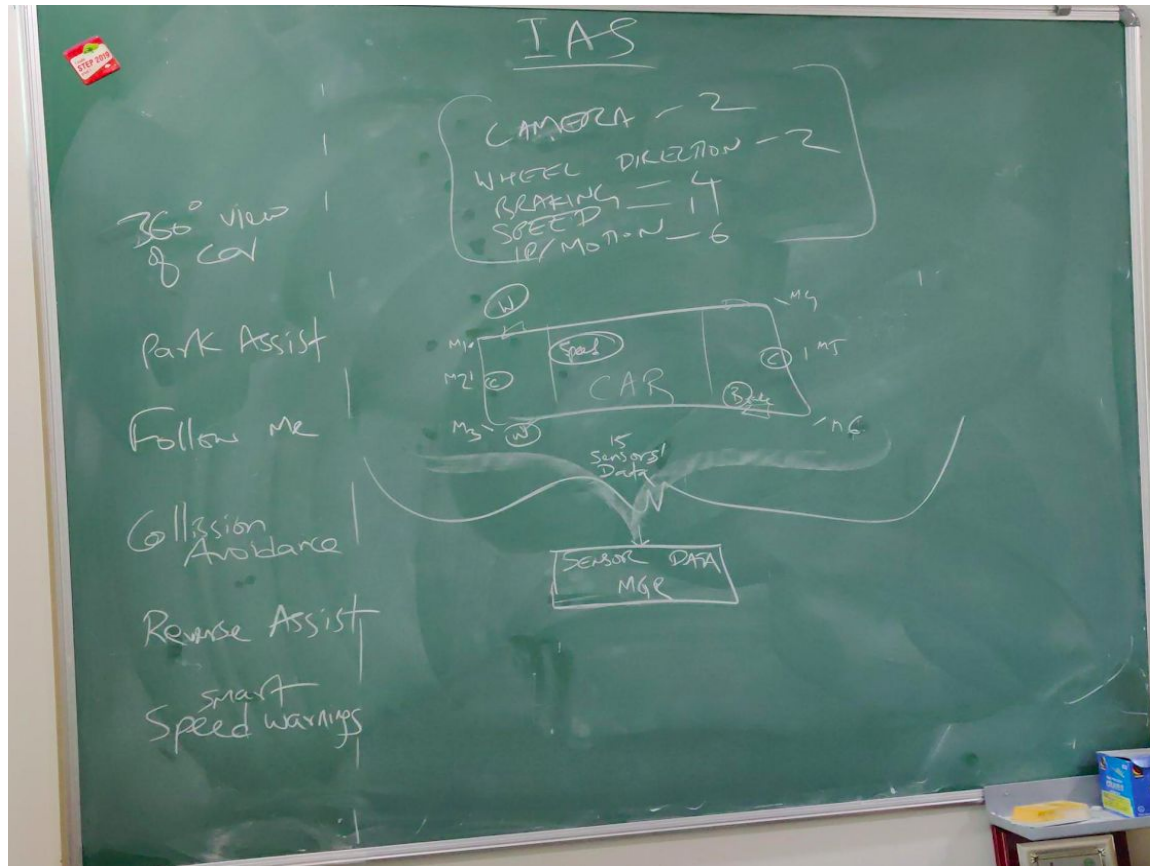 IAS
STEP 2019
CAMERA - 2
WHEEL DIRECTION - 2
BRAKING = 4
SPEED = 1
IR/MOTION - 6
360° view
of car
Park Assist
Follow Me
Collission
Avoidance
Reverse Assist
smart
Speed warnings
W
M1
M4
Speed
M2
C
CAR
C
M5
M3
W
M6
15
Sensors'
Data
SENSOR DATA
MGR